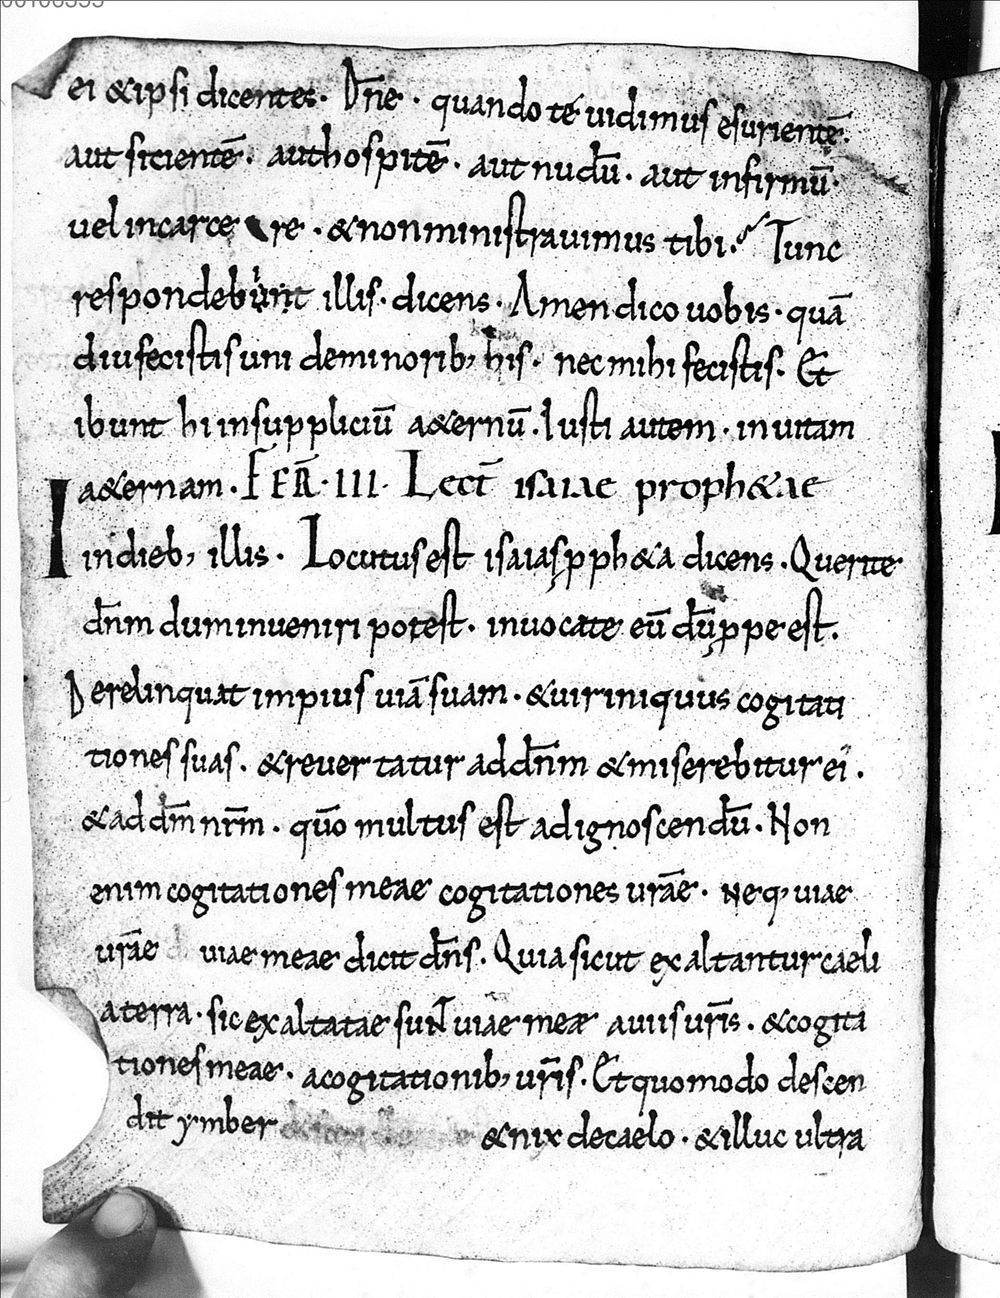 ei & ipsi dicentes. Dn̄e. quando te uidimus esurientē.
aut sicientē. aut hospitē. aut nudū. aut infirmū.
uel in carcere. & non ministrauimus tibi. Tunc
respondebunt illis. dicens. Amen dico uobis. quā
diu fecistis uni de minorib; his. nec mihi fecistis. Et
ibunt hi in suppliciū a&ernū. Iusti autem. in uitam
a&ernam. FER̄. III. Lect̄ isaiae proph&ae
In dieb; illis. Locutus est isaias ꝓph&a dicens. Querite
dn̄m dum inueniri potest. inuocate eū dū ꝓpe est.
Derelinquat impius uiā suam. & uir iniquus cogitati
tiones suas. & reuertatur ad dn̄m & miserebitur ei.
& ad dm̄ nr̄m. qūo multus est ad ignoscendū. Non
enim cogitationes meae cogitationes urāe. Neq; uiae
urāe uiae meae dicit dn̄s. Quia sicut exaltantur caeli
a terra. sic exaltatae sunt uiae meae a uiis ur̄is. & cogita
tiones meae. a cogitationib; ur̄is. Et quomodo descen
dit ymber & nix de caelo. & illuc ultra